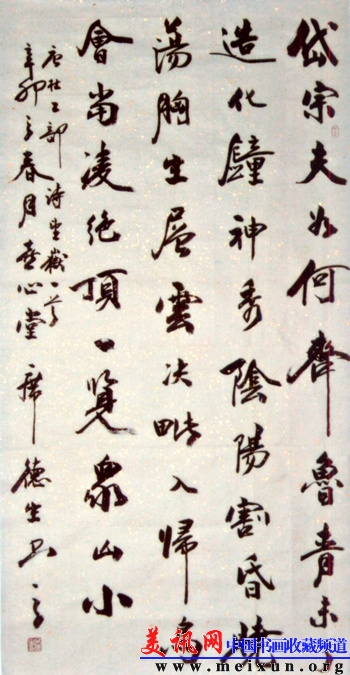 岱宗夫如何齊魯青未了
造化鐘神秀陰陽割昏曉
蕩胸生層雲决眦入歸鳥
會當凌絕頂一覽眾山小
唐杜工部詩望嶽一首
辛卯之春月 心堂 席德生书
美讯网 中国书画收藏频道
www.meixun.org